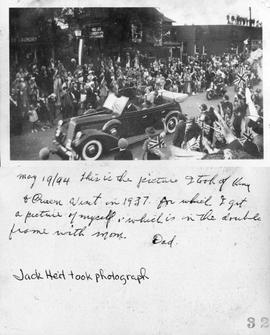 May 19/94 This is the picture I took of King
& Queen Visit in 1937. for which I got
a picture of myself, which is in the double
frame with mom. Dad.
Jack Heit took photograph
32